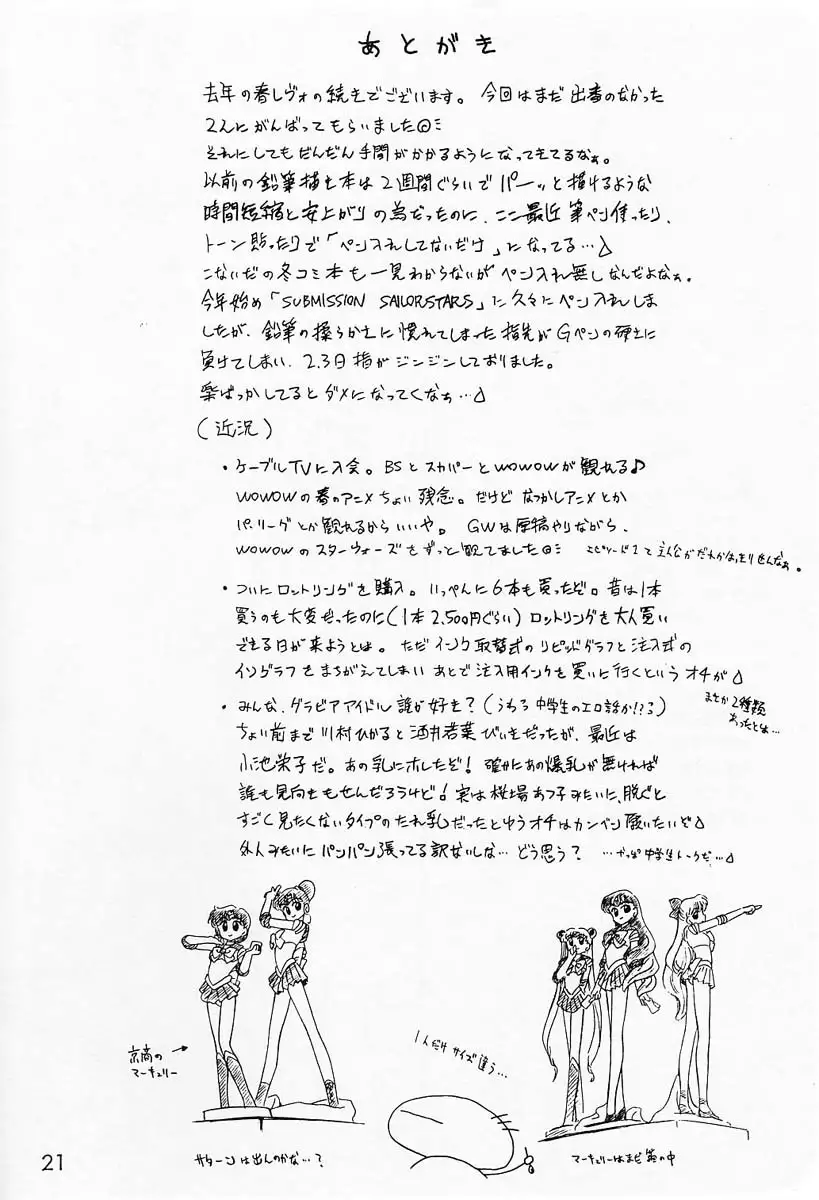 あとがき
去年の春レヴォの続きでございます。今回はまだ出番のなかった
2人にがんばってもらいました
それにしてもだんだん手間がかかるようになってきてるなぁ。
以前の鉛筆描き本は2週間ぐらいでパーッと描けるような
時間短縮と安上がりの為だったのに、ここ最近筆ペン使ったり、
トーン貼ったりで「ペン入れしてないだけ」になってる…
こないだの冬コミ本も一見わからないがペン入れ無しなんだよなぁ。
今年始め「SUBMISSION SAILORSTARS」に久々にペン入れしま
したが、鉛筆の柔らかさに慣れてしまった指先がGペンの硬さに
負けてしまい、2,3日指がジンジンしておりました。
楽ばっかしてるとダメになってくなぁ…
(近況)
・ケーブルTVに入会。BSとスカパーとWOWOWが観れる♪
WOWOWの春のアニメちょい残念。だけどなつかしアニメとか
パ・リーグとか観れるからいいや。GWは原稿やりながら、
WOWOWのスターウォーズをずっと観てました
エピソード1とえんなががだれかはっきりせんなぁ。
・ついにロットリングを購入。いっぺんに6本も買ったぞ。昔は1本
買うのも大変だったのに(1本2,500円ぐらい)ロットリングを大人買い
できる日が来ようとは。ただインク取替式のリピッドグラフと注入式の
イソグラフをまちがえてしまいあとで注入用インクを買いに行くというオチが
まさか2種類
あったとは…
・みんな、グラビアアイドル誰が好き?(うわっ中学生のエロ話か!?)
ちょい前まで川村ひかると酒井若菜びいきだったが、最近は
小池栄子だ。あの乳にホレたぞ!確かにあの爆乳が無ければ
誰も見向きもせんだろうけど!実は桜場あつ子みたいに、脱ぐと
すごく見たくないタイプのたれ乳だったとゆうオチはカンベン願いたいぞ
外人みたいにパンパン張ってる訳ないしな…どう思う?…やっぱ中学生トークだ…
京商の
マーキュリー
1人だけサイズ違う…
サターンは出んのかな…?
マーキュリーはまだ箱の中
21